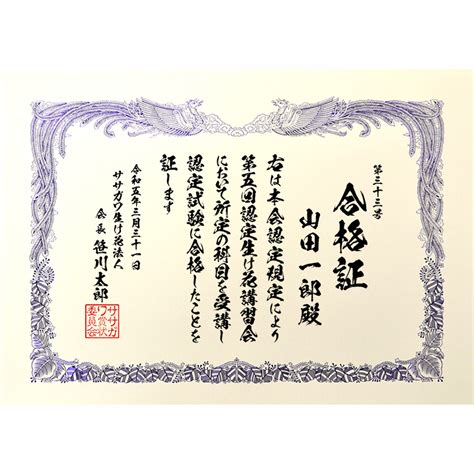 第三十三号
合格証
山田一郎殿
右は本会認定規定により
第五回認定生け花講習会
において所定の科目を受講し
認定試験に合格したことを
証します
令和五年三月三十一日
ササガワ生け花法人
会長 笹川太郎
ササガ
ワ賞状
委員会